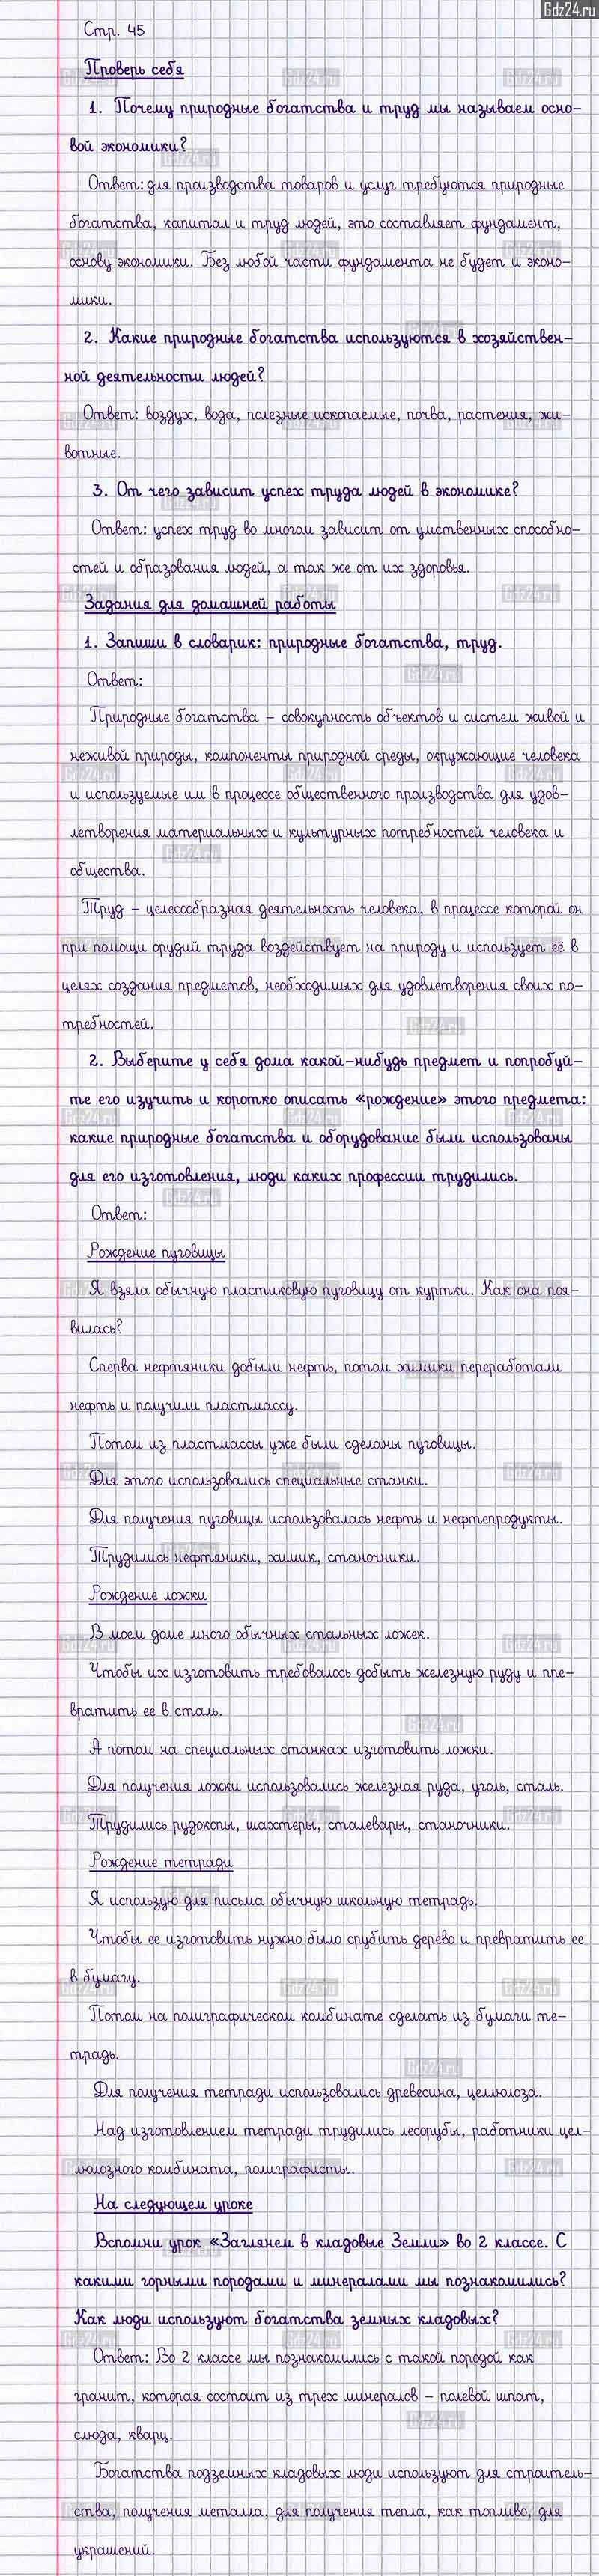 Gdz24.ru
Стр. 45
Проверь себя
1. Почему природные богатства и труд мы называем осно-
вой экономики?
Ответ: для производства товаров и услуг требуются природные
богатства, капитал и труд людей, это составляет фундамент,
основу экономики. Без любой части фундамента не будет и эконо-
мики.
2. Какие природные богатства используются в хозяйствен-
ной деятельности людей?
Ответ: воздух, вода, полезные ископаемые, почва, растения, жи-
вотные.
3. От чего зависит успех труда людей в экономике?
Ответ: успех труд во многом зависит от умственных способно-
стей и образования людей, а так же от их здоровья.
Задания для домашней работы
1. Запиши в словарик: природные богатства, труд.
Ответ:
Природные богатства – совокупность объектов и систем живой и
неживой природы, компоненты природной среды, окружающие человека
и используемые им в процессе общественного производства для удов-
летворения материальных и культурных потребностей человека и
общества.
Труд – целесообразная деятельность человека, в процессе которой он
при помощи орудий труда воздействует на природу и использует её в
целях создания предметов, необходимых для удовлетворения своих по-
требностей.
2. Выберите у себя дома какой-нибудь предмет и попробуй-
те его изучить и коротко описать «рождение» этого предмета:
какие природные богатства и оборудование были использованы
для его изготовления, люди каких профессии трудились.
Ответ:
Рождение пуговицы
Я взяла обычную пластиковую пуговицу от куртки. Как она поя-
вилась?
Сперва нефтяники добыли нефть, потом химики переработали
нефть и получили пластмассу.
Потом из пластмассы уже были сделаны пуговицы.
Для этого использовались специальные станки.
Для получения пуговицы использовалась нефть и нефтепродукты.
Трудились нефтяники, химик, станочники.
Рождение ложки
В моем доме много обычных стальных ложек.
Чтобы их изготовить требовалось добыть железную руду и пре-
вратить ее в сталь.
А потом на специальных станках изготовить ложки.
Для получения ложки использовались железная руда, уголь, сталь.
Трудились рудокопы, шахтеры, сталевары, станочники.
Рождение тетради
Я использую для письма обычную школьную тетрадь.
Чтобы ее изготовить нужно было срубить дерево и превратить ее
в бумагу.
Потом на полиграфическом комбинате сделать из бумаги те-
традь.
Для получения тетради использовались древесина, целлюлоза.
Над изготовлением тетради трудились лесорубы, работники цел-
люлозного комбината, полиграфисты.
На следующем уроке
Вспомни урок «Заглянем в кладовые Земли» во 2 классе. С
какими горными породами и минералами мы познакомились?
Как люди используют богатства земных кладовых?
Ответ: Во 2 классе мы познакомились с такой породой как
гранит, которая состоит из трех минералов – полевой шпат,
слюда, кварц.
Богатства подземных кладовых люди используют для строитель-
ства, получения металла, для получения тепла, как топливо, для
украшений.